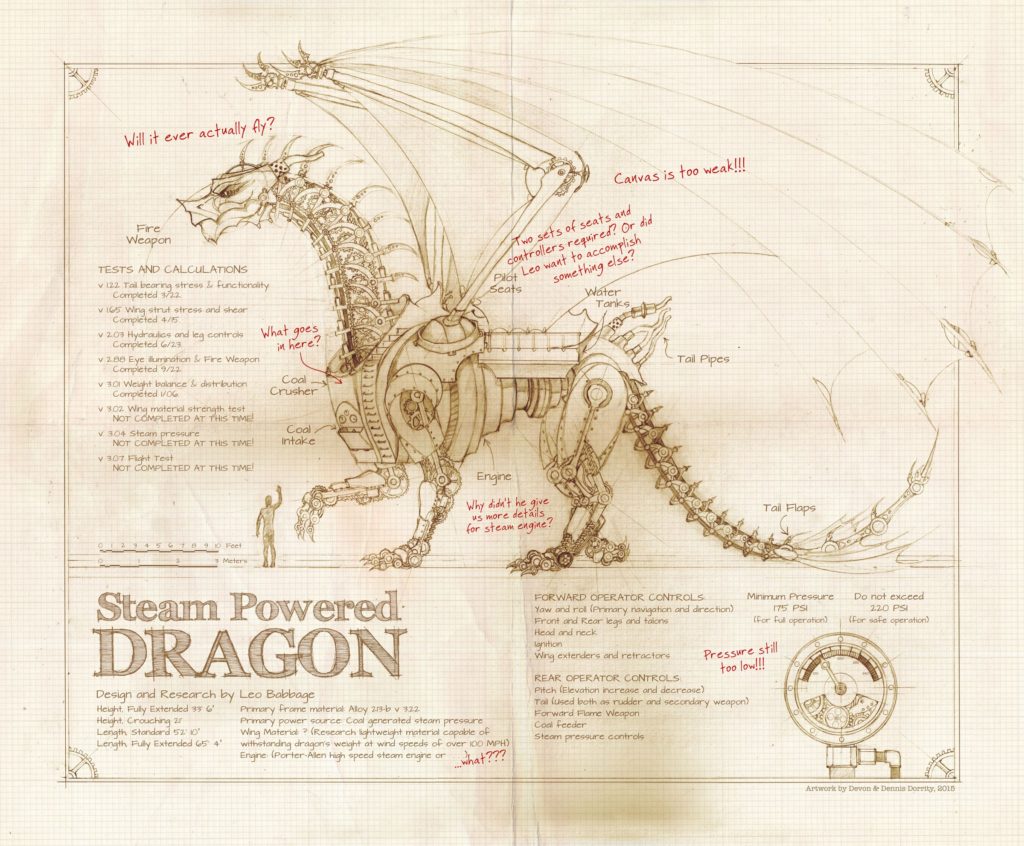 Will it ever actually fly?
Canvas is too weak!!!
Fire
Weapon
Two sets of seats and
controllers required? Or did
Leo want to accomplish
something else?
Pilot
Seats
Water
Tanks
Tail Pipes
TESTS AND CALCULATIONS
v 1.22 Tail bearing stress & functionality
Completed 3/22
v 1.65 Wing strut stress and shear
Completed 4/15
v 2.03 Hydraulics and leg controls
Completed 6/23
v 2.88 Eye illumination & Fire Weapon
Completed 9/22
v 3.01 Weight balance & distribution
Completed 1/06
v 3.02 Wing material strength test
NOT COMPLETED AT THIS TIME!
v 3.04 Steam pressure
NOT COMPLETED AT THIS TIME!
v 3.07 Flight Test
NOT COMPLETED AT THIS TIME!
What goes
in here?
Coal
Crusher
Coal
Intake
Engine
Why didn't he give
us more details
for steam engine?
Tail Flaps
0 1 2 3 4 5 6 7 8 9 10 Feet
0 1 2 3 Meters
Steam Powered
DRAGON
Design and Research by Leo Babbage
Height, Fully Extended 33' 6"
Height, Crouching 21'
Length, Standard 52' 10"
Length, Fully Extended 65' 4"
Primary frame material: Alloy 213-b v 3.22
Primary power source: Coal generated steam pressure
Wing Material: ? (Research lightweight material capable of
withstanding dragon's weight at wind speeds of over 100 MPH)
Engine: (Porter-Allen high speed steam engine or
...what???
FORWARD OPERATOR CONTROLS:
Yaw and roll (Primary navigation and direction)
Front and Rear legs and talons
Head and neck
Ignition
Wing extenders and retractors
REAR OPERATOR CONTROLS:
Pitch (Elevation increase and decrease)
Tail (Used both as rudder and secondary weapon)
Forward Flame Weapon
Coal feeder
Steam pressure controls
Minimum Pressure
175 PSI
(for full operation)
Do not exceed
220 PSI
(for safe operation)
Pressure still
too low!!!
Artwork by Devon & Dennis Dorrity, 2015